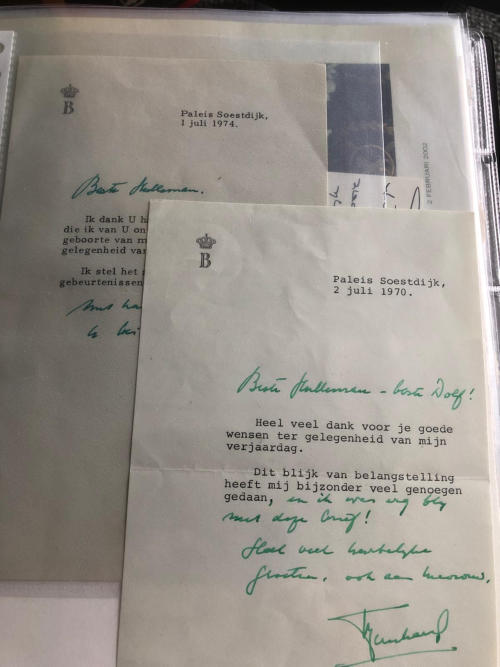 B
Paleis Soestdijk,
1 juli 1974.
Beste Hulleman.
Ik dank U h
die ik van U on
geboorte van m
gelegenheid van
Ik stel het
gebeurtenissen
2 FEBRUARI 2002
B
Paleis Soestdijk,
2 juli 1970.
Beste Hulleman - beste Dolf!
Heel veel dank voor je goede
wensen ter gelegenheid van mijn
verjaardag.
Dit blijk van belangstelling
heeft mij bijzonder veel genoegen
gedaan, en ik was erg blij
met deze brief!
Heel veel hartelijke
groeten, ook aan mevrouw,
Bernhard